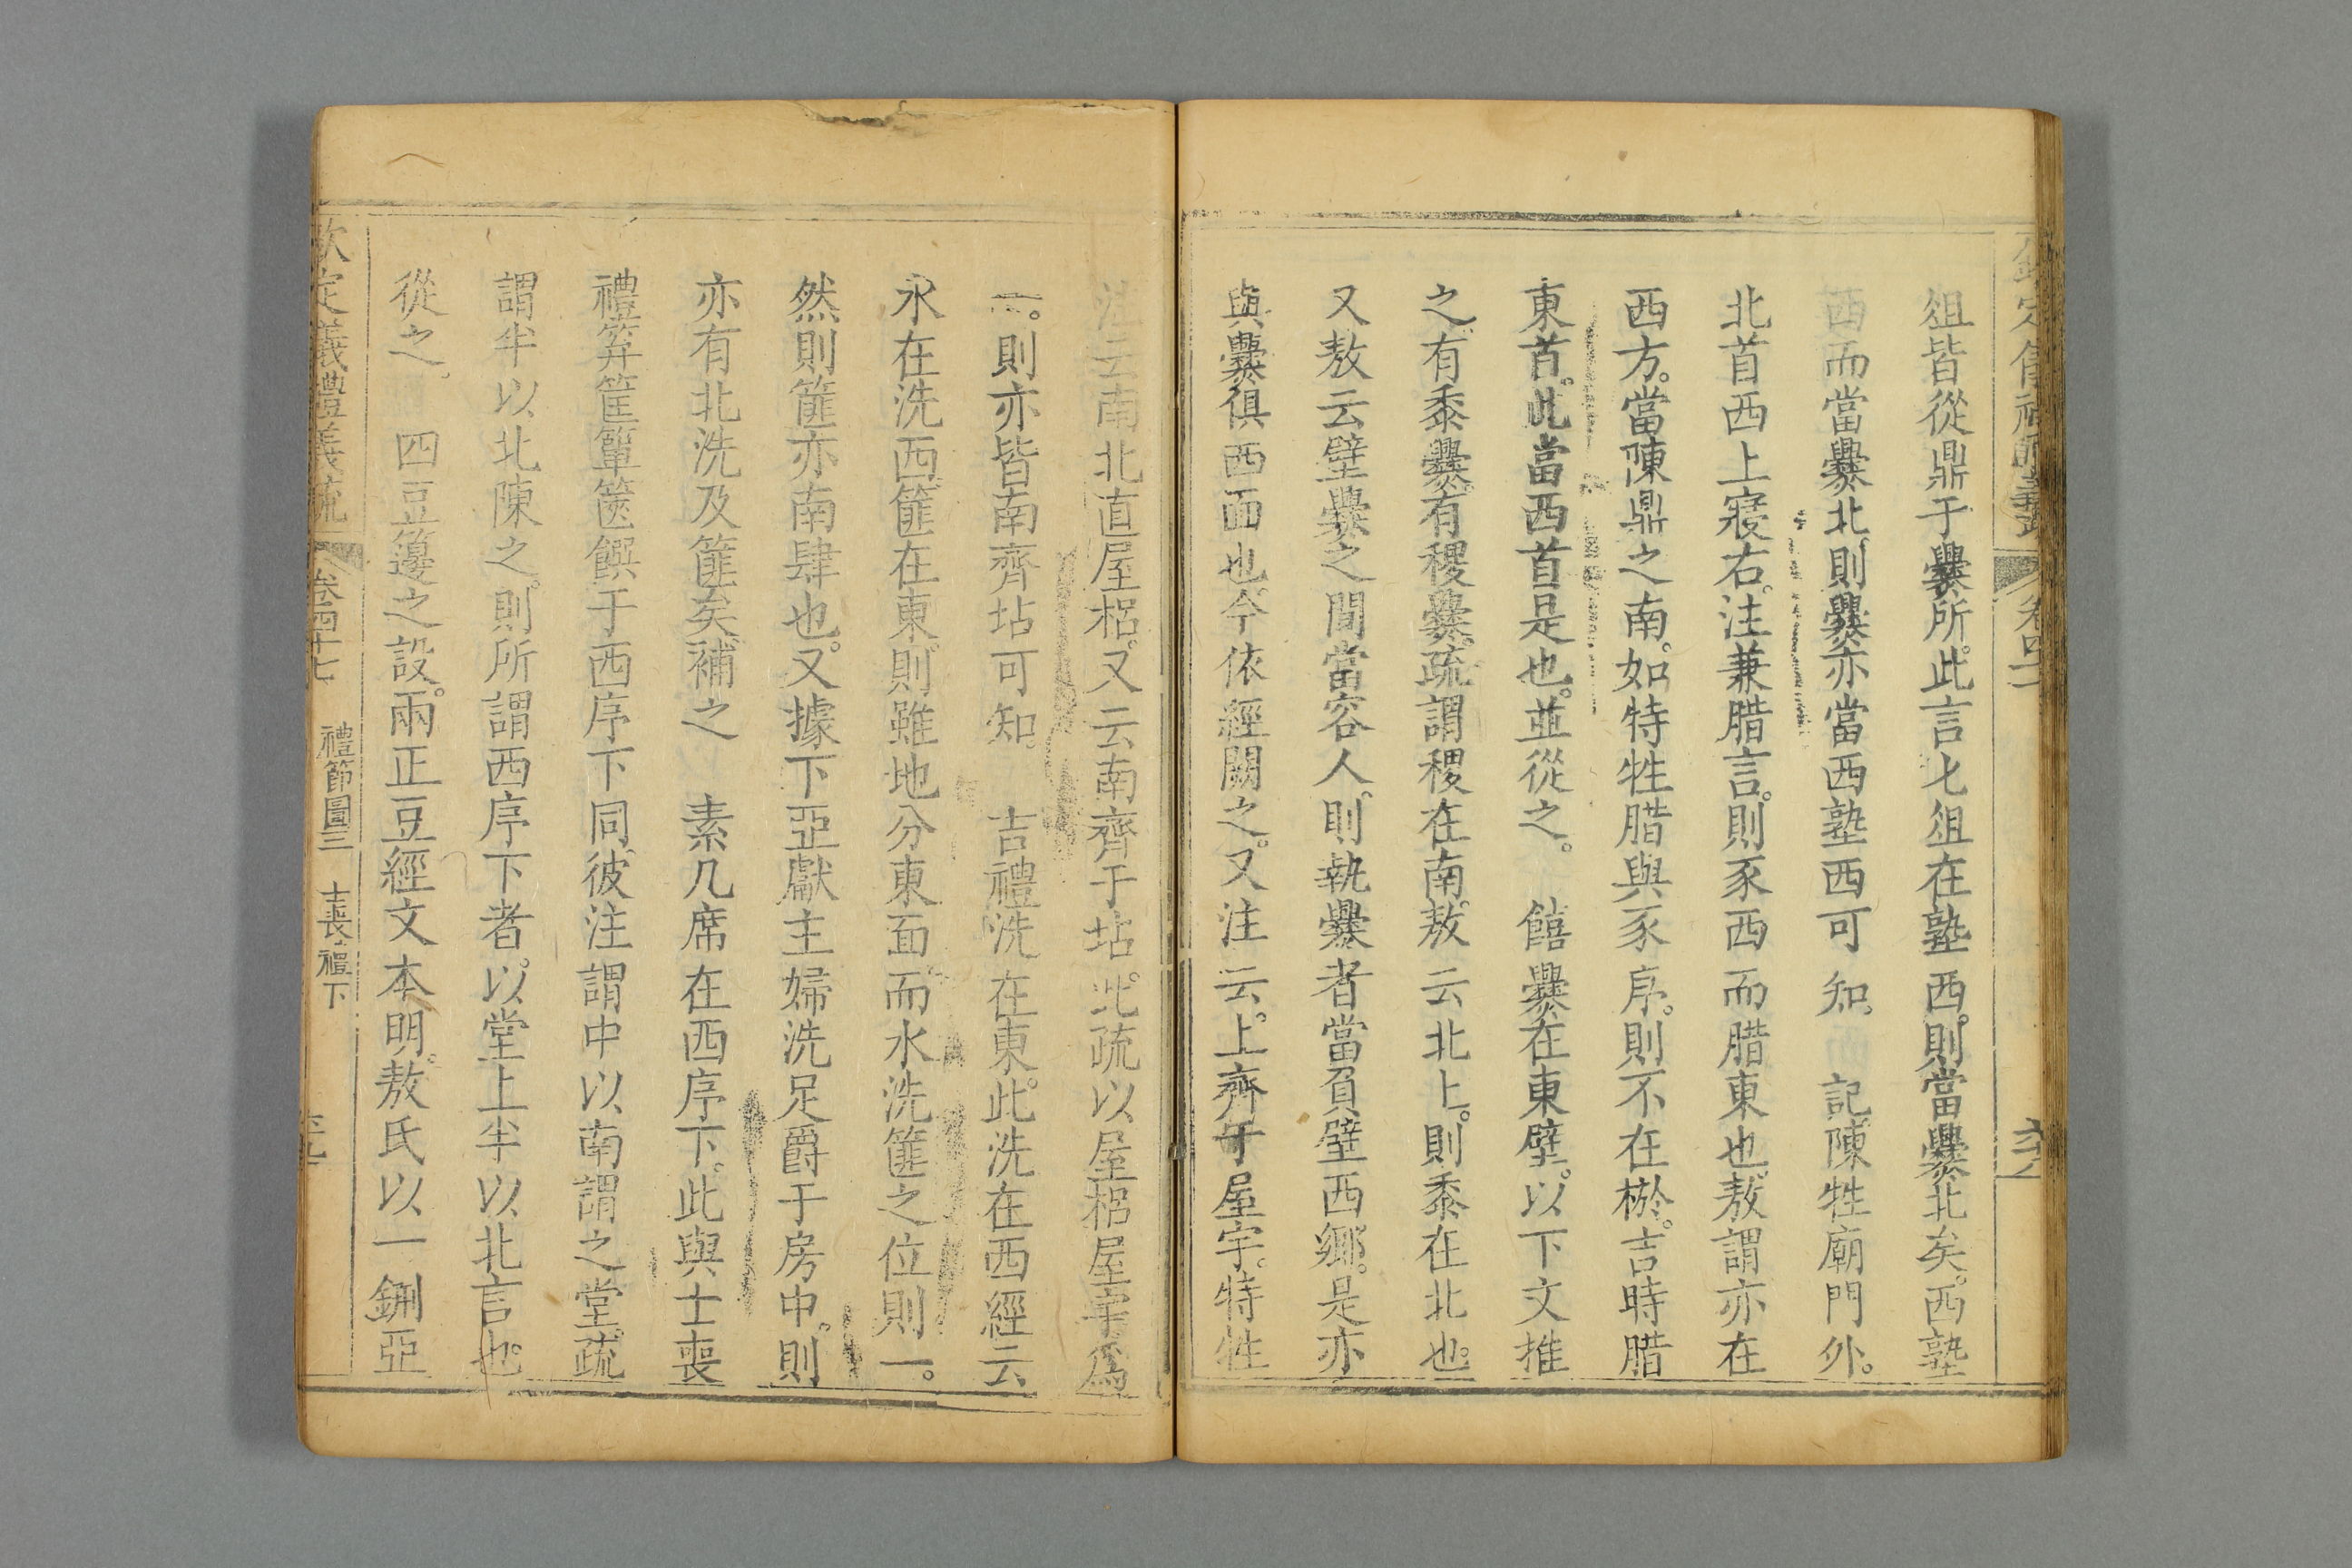 俎皆從鼎于爨所。此言匕俎在塾西。則當爨北矣。西塾
西而當爨北則爨亦當西塾西可知。記陳牲廟門外。
北首西上寢右。注兼腊言。則豕西而腊東也。敖謂亦在
西方。當陳鼎之南。如特牲腊與豕序。則不在棜。言時腊
東首。此當西首是也。並從之。 饎爨在東壁。以下文推
之。有黍爨。有稷爨。疏謂稷在南。敖云北上。則黍在北也。
又敖云壁爨之間當容人。則執爨者當負壁西鄉。是亦
與爨俱西面也。今依經闕之。又注云。上齊于屋宇。特牲
注云南北直屋梠。又云南齊于坫。此疏以屋梠屋宇爲
一。則亦皆南齊坫可知。 吉禮洗在東。此洗在西經云
水在洗西。篚在東。則雖地分東面。而水洗篚之位則一。
然則篚亦南肆也。又據下亞獻主婦洗足爵于房中。則
亦有北洗及篚矣。補之 素几席在西序下。此與士喪
禮笲筐簞篋饌于西序下同。彼注謂中以南謂之堂。疏
謂半以北陳之。則所謂西序下者。以堂上半以北言也。
從之。 四豆籩之設。兩正豆經文本明。敖氏以一鉶亞
欽定義禮義疏 卷四十七 禮節圖三 士喪禮下